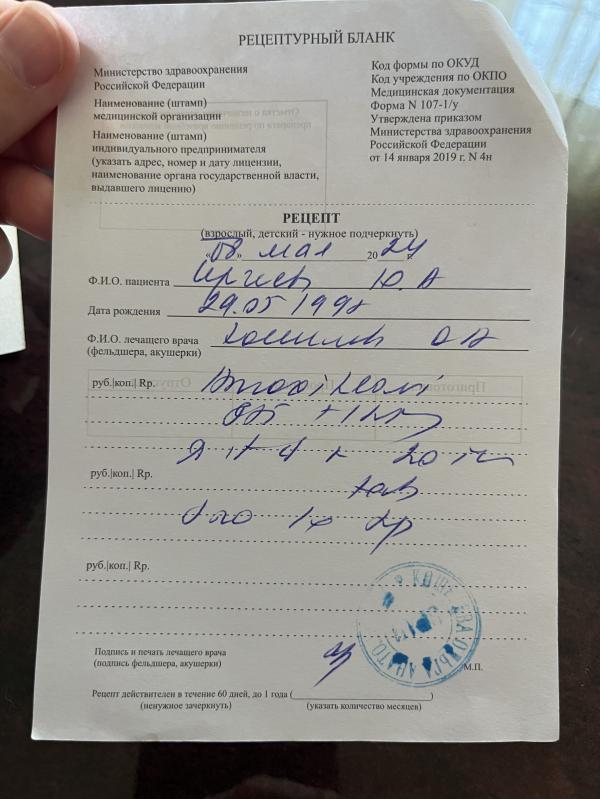 РЕЦЕПТУРНЫЙ БЛАНК
Министерство здравоохранения
Российской Федерации
Наименование (штамп)
медицинской организации
Наименование (штамп)
индивидуального предпринимателя
(указать адрес, номер и дату лицензии,
наименование органа государственной власти,
выдавшего лицензию)
Код формы по ОКУД
Код учреждения по ОКПО
Медицинская документация
Форма N 107-1/у
Утверждена приказом
Министерства здравоохранения
Российской Федерации
от 14 января 2019 г. N 4н
РЕЦЕПТ
(взрослый, детский - нужное подчеркнуть)
«08» мая 2024 г.
Ф.И.О. пациента Ю.А
Дата рождения 29.05 1998
Ф.И.О. лечащего врача
(фельдшера, акушерки)
руб.|коп.| Rp.
20
руб.|коп.| Rp. tab
руб.|коп.| Rp.
Подпись и печать лечащего врача
(подпись фельдшера, акушерки)
М.П.
Рецепт действителен в течение 60 дней, до 1 года (
)
(ненужное зачеркнуть)
(указать количество месяцев)